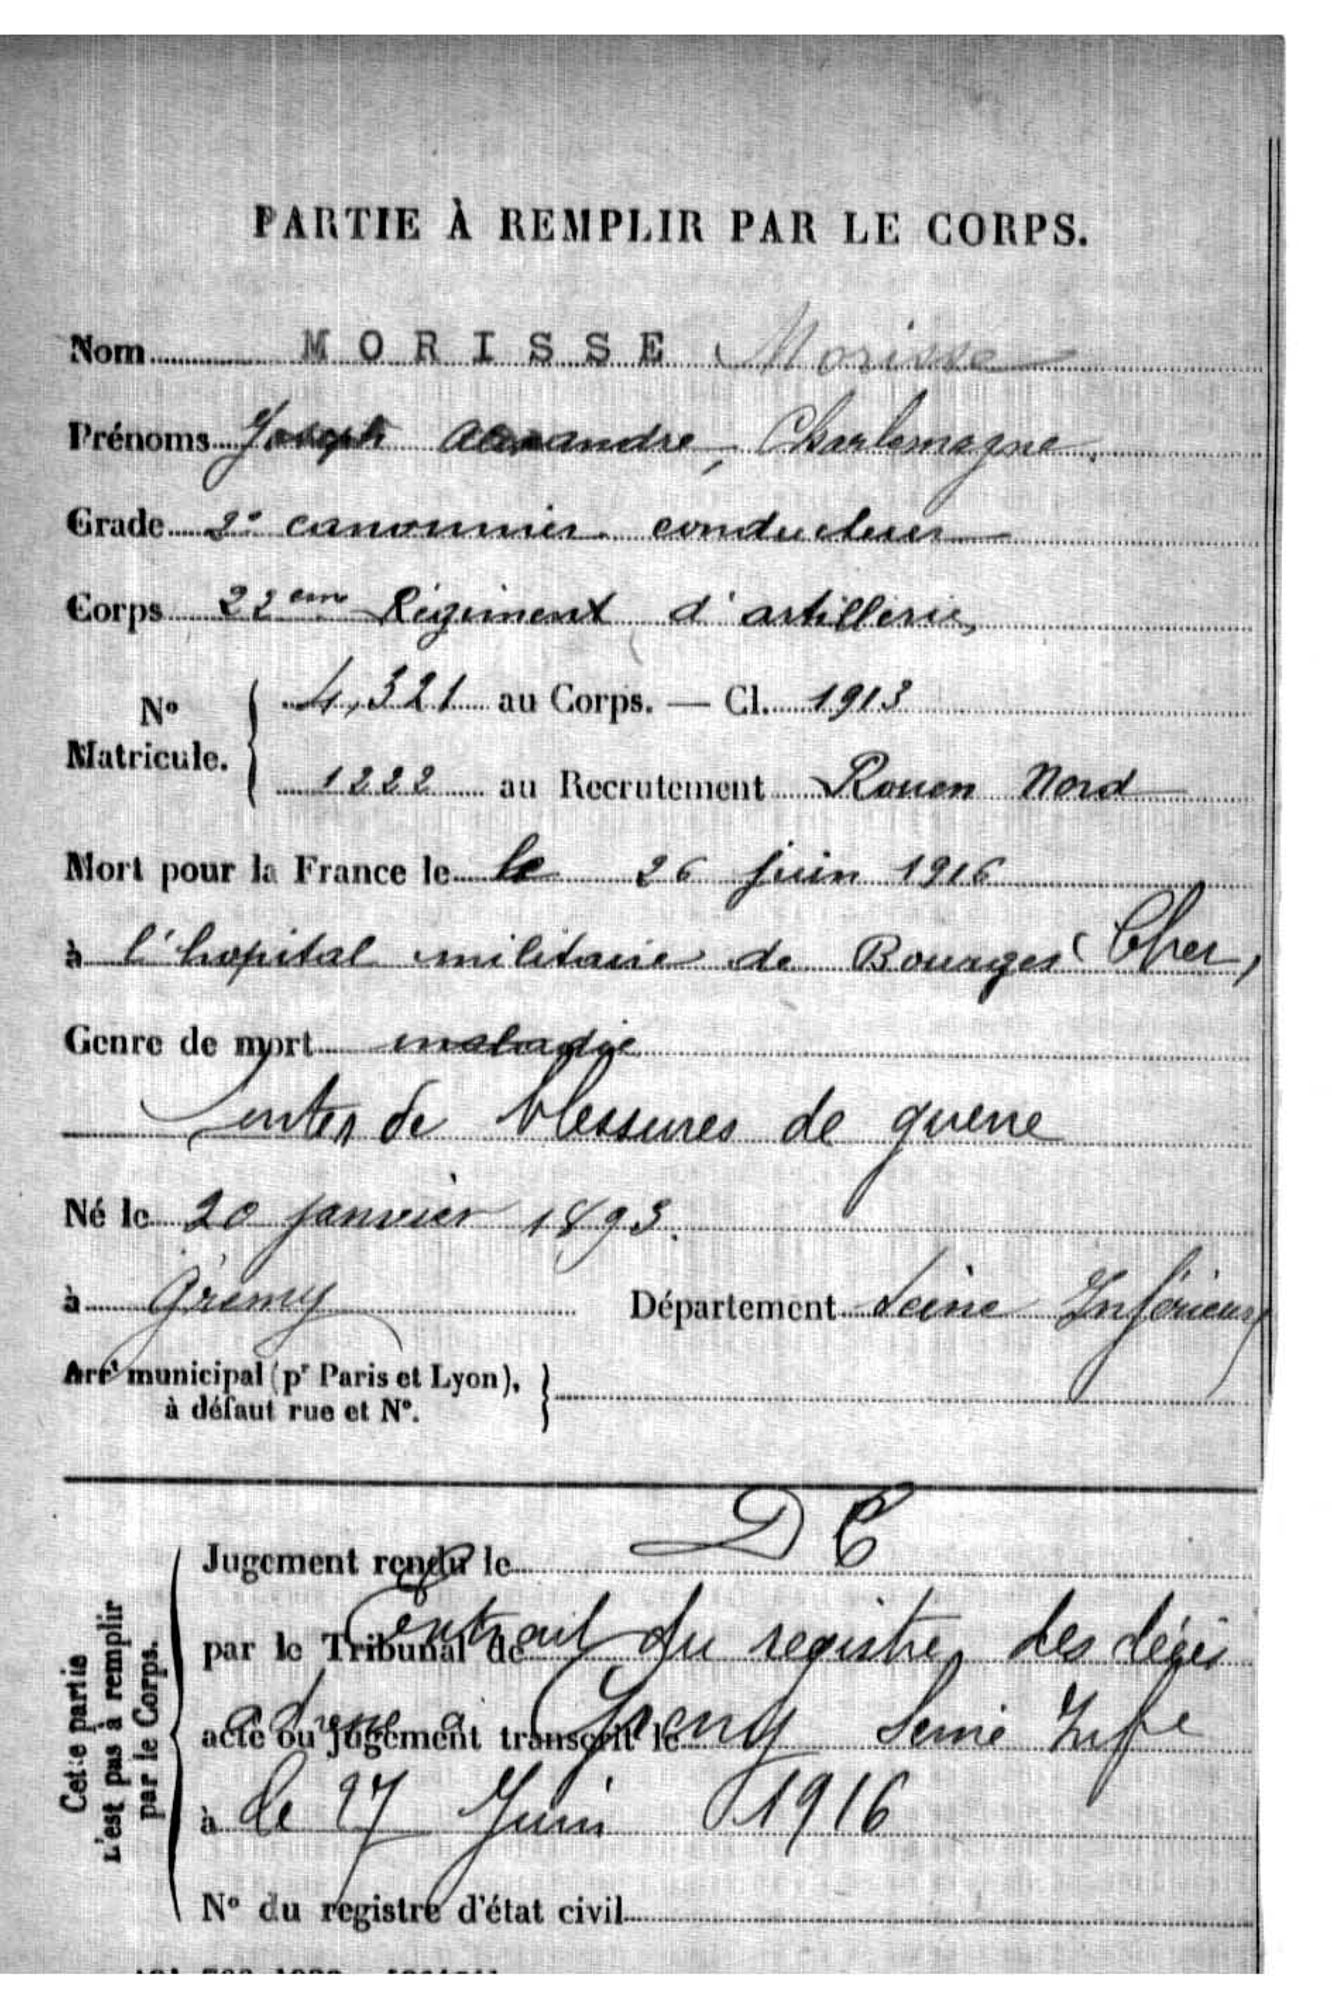 PARTIE À REMPLIR PAR LE CORPS.
Nom MORISSE Morisse
Prénoms Joseph Alexandre, Charlemagne.
Grade 2e canonnier conducteur
Corps 22em Régiment d'artillerie
No Matricule. 4,321 au Corps. — Cl. 1913
1222 au Recrutement Rouen Nord
Mort pour la France le le 26 juin 1916
à l'hopital militaire de Bourges (Cher,
Genre de mort maladie
Suites de blessures de guerre
Né le 20 janvier 1893.
à Grémy Département Seine Inférieure
Arrt municipal (pr Paris et Lyon),
à défaut rue et No.
Cette partie
n'est pas à remplir
par le Corps.
DC
Jugement rendu le
par le Tribunal de Extrait du registre des décès
acte ou jugement transcrit le à Seine Infre
à le 27 Juin 1916
No du registre d'état civil